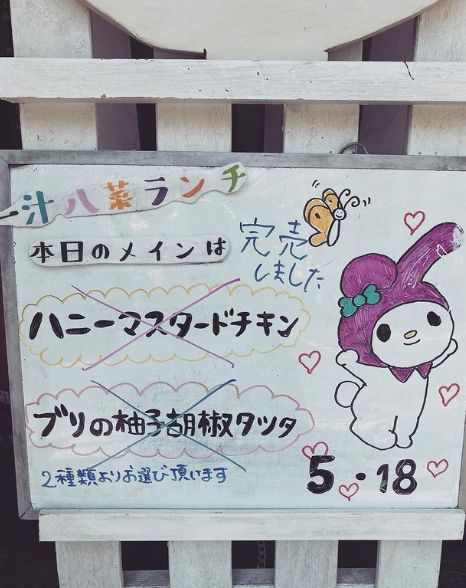 一汁八菜ランチ
本日のメインは
完売
しました
ハニーマスタードチキン
ブリの柚子胡椒タツタ
2種類よりお選び頂います
5・18